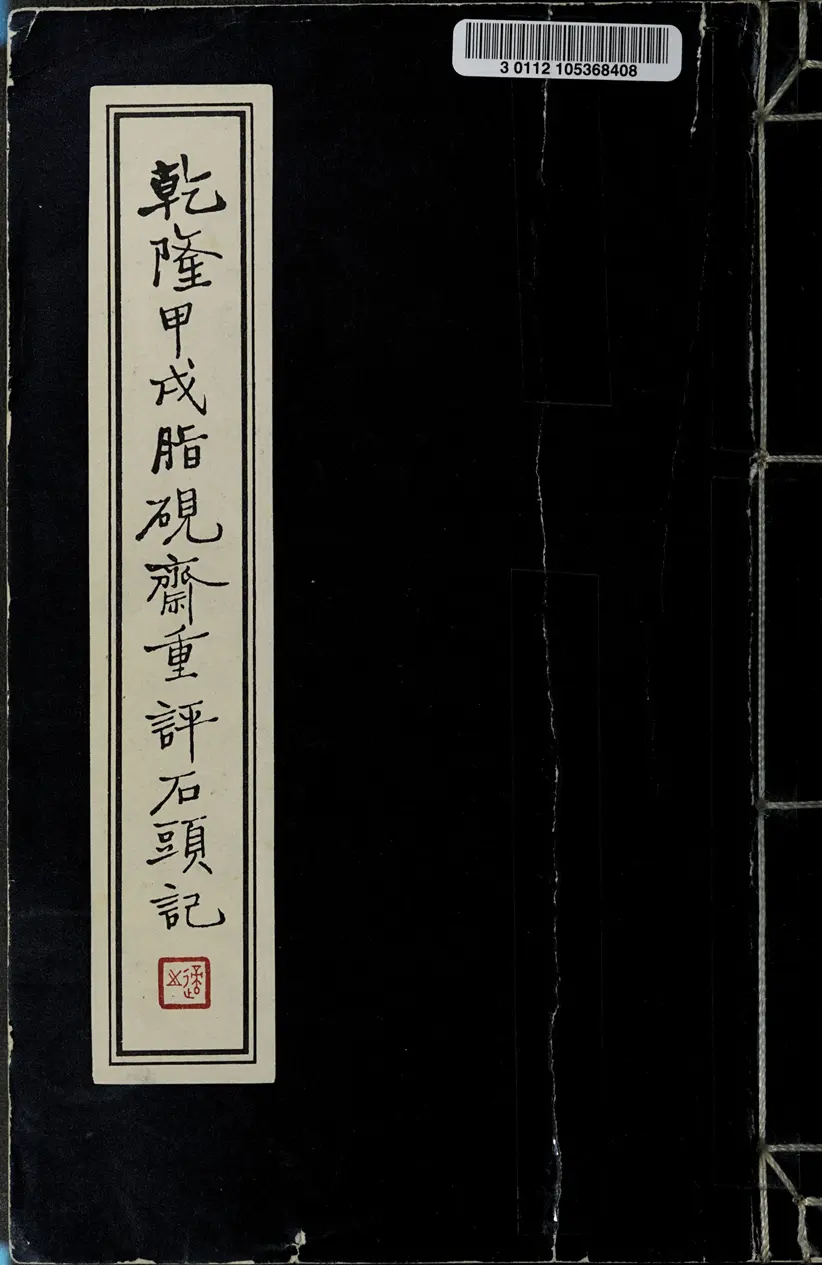 3 0112 105368408
乾隆甲戌脂硯齋重評石頭記